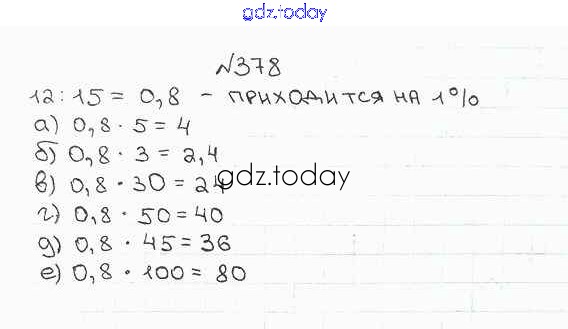 gdz.today
№378
12:15 = 0,8 - ПРИХОДИТСЯ НА 1%
а) 0,8 · 5 = 4
б) 0,8 · 3 = 2,4
в) 0,8 · 30 = 24
gdz.today
г) 0,8 · 50 = 40
д) 0,8 · 45 = 36
е) 0,8 · 100 = 80